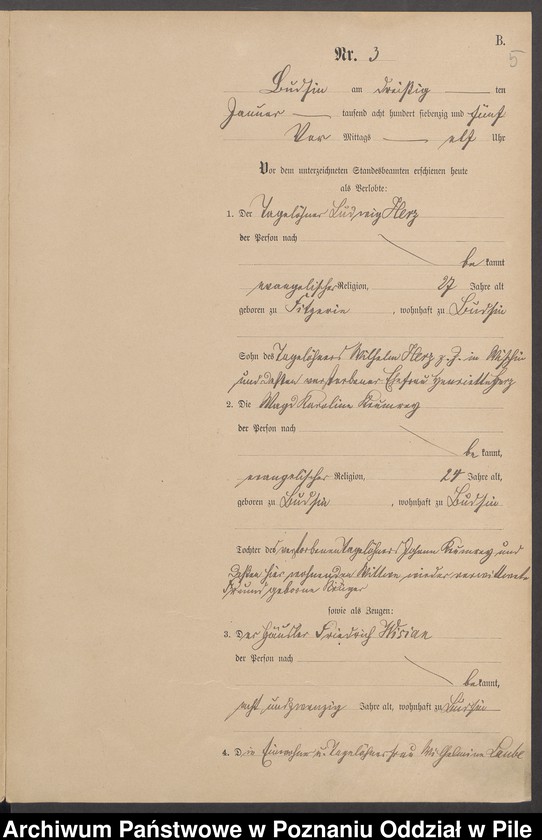 B.
5
Nr. 3
Budsin am dreißig ten
Januar tausend acht hundert siebenzig und fünf
Vor Mittags elf Uhr
Vor dem unterzeichneten Standesbeamten erschienen heute
als Verlobte:
1. Der Tagelöhner Ludwig Herz
der Person nach
be kannt
evangelischer Religion, 27 Jahre alt
geboren zu , wohnhaft zu Budsin
Sohn des Tagelöhners Wilhelm Herz z. Z. in
und dessen verstorbener Ehefrau Henriette Herz
2. Die Magd Karoline Krumrey
der Person nach
be kannt,
evangelischer Religion, 24 Jahre alt,
geboren zu Budsin , wohnhaft zu Budsin
Tochter des verstorbenen Tagelöhners Johann Krumrey und
dessen hier wohnenden Wittwe wieder verwittwete
geborne Krüger
sowie als Zeugen:
3. Der Häusler Friedrich
der Person nach
be kannt,
acht und zwanzig Jahre alt, wohnhaft zu Budsin
4. Die Einwohner u. Tagelöhnerfrau Wilhelmine
Archiwum Państwowe w Poznaniu Oddział w Pile